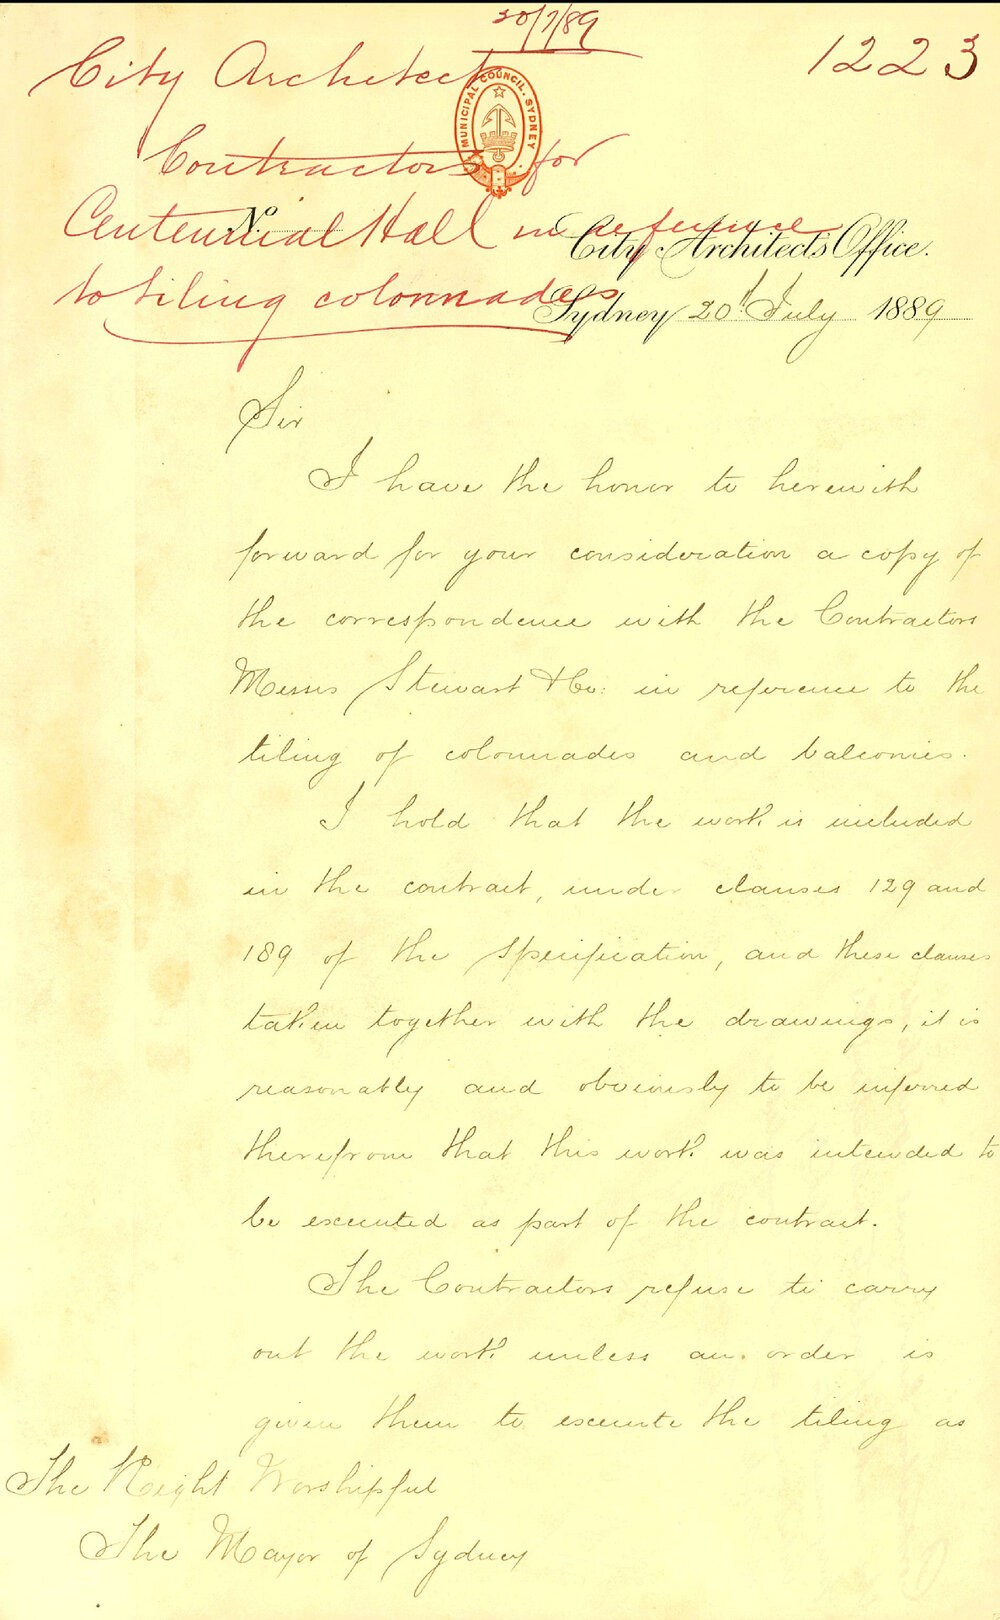 20/7/89
1223
City Architect
MUNICIPAL COUNCIL. SYDNEY
Contractors for
Centennial Hall in refusal
to tiling colonnades
No.
City Architect's Office.
Sydney 20th July 1889
Sir
I have the honor to herewith
forward for your consideration a copy of
the correspondence with the Contractors
Messrs Stewart & Co: in reference to the
tiling of colonnades and balconies.
I hold that the work is included
in the contract, under clauses 129 and
189 of the Specification, and these clauses
taken together with the drawings, it is
reasonably and obviously to be inferred
therefrom that this work was intended to
be executed as part of the contract.
The Contractors refuse to carry
out the work unless an order is
given them to execute the tiling as
The Right Worshipful
The Mayor of Sydney